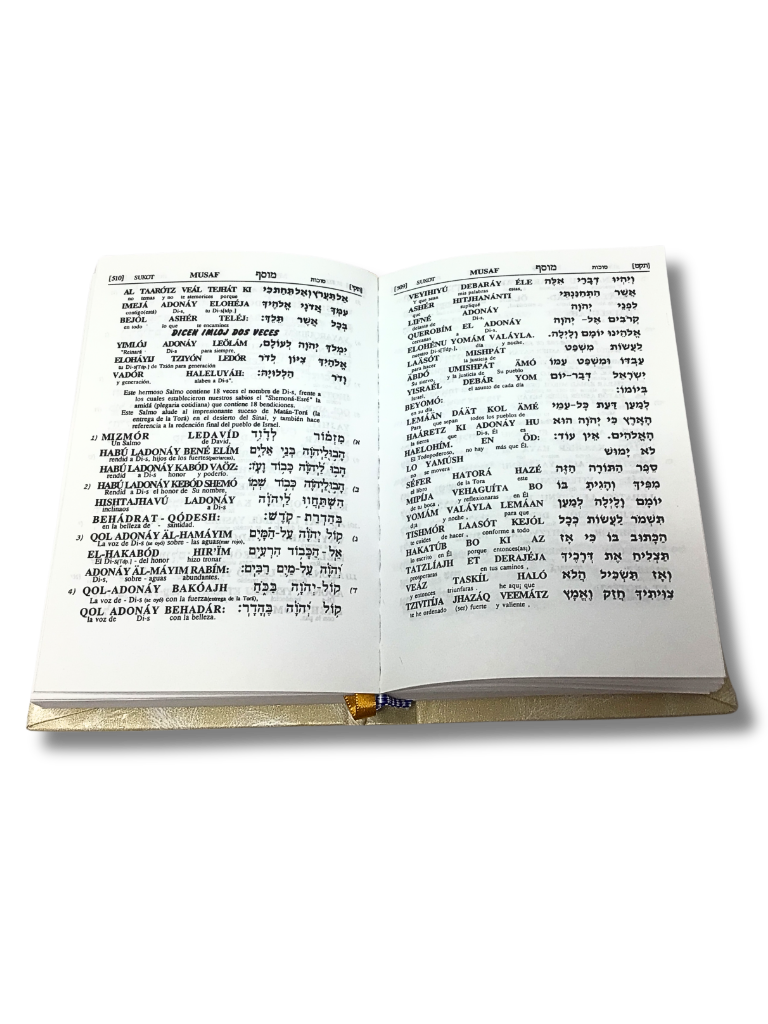 [509] SUKOT MUSAF מוסף סוכות [תקט]
VEYIHIYÚ DEBARÁY ÉLE וְיִהְיוּ דְבָרַי אֵלֶּה
Y que sean mis palabras estas,
ASHÉR HITJHANÁNTI אֲשֶׁר הִתְחַנַּנְתִּי
que supliqué
LIFNÉ ADONÁY לִפְנֵי יְהֹוָה
delante de Di-s,
QUEROBÍM EL ADONÁY קְרֹבִים אֶל-יְהֹוָה
cercanas a Di-s,
ELOHÉNU YOMÁM VALÁYLA. אֱלֹהֵינוּ יוֹמָם וָלָיְלָה.
nuestro Di-s[Tęp.], día y noche,
LAÄSÓT MISHPÁT לַעֲשׂוֹת מִשְׁפַּט
para hacer la justicia de
ÄBDÓ UMISHPÁT ÄMÓ עַבְדּוֹ וּמִשְׁפַּט עַמּוֹ
Su siervo, y la justicia de Su pueblo
YISRAÉL DEBÁR YOM יִשְׂרָאֵל דְּבַר-יוֹם
el asunto de cada día
BEYOMÓ: בְּיוֹמוֹ:
en su día
LEMÁÄN DÁÄT KOL ÄMÉ לְמַעַן דַּעַת כָּל-עַמֵּי
Para que sepan todos los pueblos de
HAÁRETZ KI ADONÁY HU הָאָרֶץ כִּי יְהֹוָה הוּא
la tierra que Di-s, Él es
HAELOHÍM. EN ÖD: הָאֱלֹהִים. אֵין עוֹד:
el Todopoderoso, no hay más que Él.
LO YAMÚSH לֹא יָמוּשׁ
no se moverá
SÉFER HATORÁ HAZÉ סֵפֶר הַתּוֹרָה הַזֶּה
el libro de la Tora este
MIPÍJA VEHAGUÍTA BO מִפִּיךָ וְהָגִיתָ בּוֹ
de tu boca, y reflexionaras en Él
YOMÁM VALÁYLA LEMÁAN יוֹמָם וָלַיְלָה לְמַעַן
día y noche, para que
TISHMÓR LAASÓT KEJÓL תִּשְׁמֹר לַעֲשׂוֹת כְּכָל
te cuides de hacer, conforme a todo
HAKATÚB BO KI AZ הַכָּתוּב בּוֹ כִּי אָז
lo escrito en Él porque entonces(así)
TATZLÍAJH ET DERAJÉJA תַּצְלִיחַ אֶת דְּרָכֶיךָ
prosperaras en tus caminos,
VEÁZ TASKÍL HALÓ וְאָז תַּשְׂכִּיל הֲלֹא
y entonces triunfaras, he aquí que
TZIVITÍJA JHAZÁQ VEEMÁTZ צִוִּיתִיךָ חֲזַק וֶאֱמָץ
te he ordenado (ser) fuerte y valiente,
[510] SUKOT MUSAF מוסף סוכות [תקי]
AL TAARÓTZ VEÁL TEJHÁT KI אַל תַּעֲרֹץ וְאַל תֵּחָת כִּי
no temas y no te atemorices porque
IMEJÁ ADONÁY ELOHÉJA עִמְּךָ אֲדֹנָי אֱלֹהֶיךָ
contigo(está) Di-s, tu Di-s[tęp.]
BEJÓL ASHÉR TELÉJ: בְּכֹל אֲשֶׁר תֵּלֵךְ:
en todo lo que te encamines
DICEN IMLOJ DOS VECES
YIMLÓJ ADONÁY LEÖLÁM, יִמְלֹךְ יְהֹוָה לְעוֹלָם,
"Reinará Di-s para siempre,
ELOHÁYIJ TZIYÓN LEDÓR אֱלֹהַיִךְ צִיּוֹן לְדֹר
tu Di-s[Tęp.] de Tzión para generación
VADÓR HALELUYÁH: וָדֹר הַלְלוּיָהּ:
y generación, alaben a Di-s".
Este hermoso Salmo contiene 18 veces el nombre de Di-s, frente a
los cuales establecieron nuestros sabios el "Shemoná-Esré" la
amidá (plegaria cotidiana) que contiene 18 bendiciones.
Este Salmo alude al impresionante suceso de Matán-Torá (la
entrega de la Torá) en el desierto del Sinaí, y también hace
referencia a la redención final del pueblo de Israel.
1) MIZMÓR LEDAVÍD מִזְמוֹר לְדָוִד א)
Un Salmo de David,
HABÚ LADONÁY BENÉ ELÍM הָבוּ לַיהֹוָה בְּנֵי אֵלִים
rendid a Di-s, hijos de los fuertes(poderosos),
HABÚ LADONÁY KABÓD VAÖZ: הָבוּ לַיהֹוָה כָּבוֹד וָעֹז:
rendid a Di-s honor y poderío.
2) HABÚ LADONÁY KEBÓD SHEMÓ הָבוּ לַיהֹוָה כְּבוֹד שְׁמוֹ ב)
Rendid a Di-s el honor de Su nombre,
HISHTAJHAVÚ LADONÁY הִשְׁתַּחֲווּ לַיהֹוָה
inclinaos a Di-s
BEHÁDRAT - QÓDESH: בְּהַדְרַת-קֹדֶשׁ:
en la belleza de santidad.
3) QOL ADONÁY ÄL-HAMÁYIM קוֹל יְהֹוָה עַל-הַמָּיִם ג)
La voz de Di-s(se oyó) sobre - las aguas(mar rojo),
EL-HAKABÓD HIR'ÏM אֵל-הַכָּבוֹד הִרְעִים
El Di-s[Tęp.] - del honor hizo tronar
ADONÁY ÄL-MÁYIM RABÍM: יְהֹוָה עַל-מַיִם רַבִּים:
Di-s, sobre - aguas abundantes.
4) QOL-ADONÁY BAKÓAJH קוֹל-יְהֹוָה בַּכֹּחַ ד)
La voz de - Di-s (se oyó) con la fuerza(entrega de la Torá),
QOL ADONÁY BEHADÁR: קוֹל יְהֹוָה בֶּהָדָר:
la voz de Di-s con la belleza.